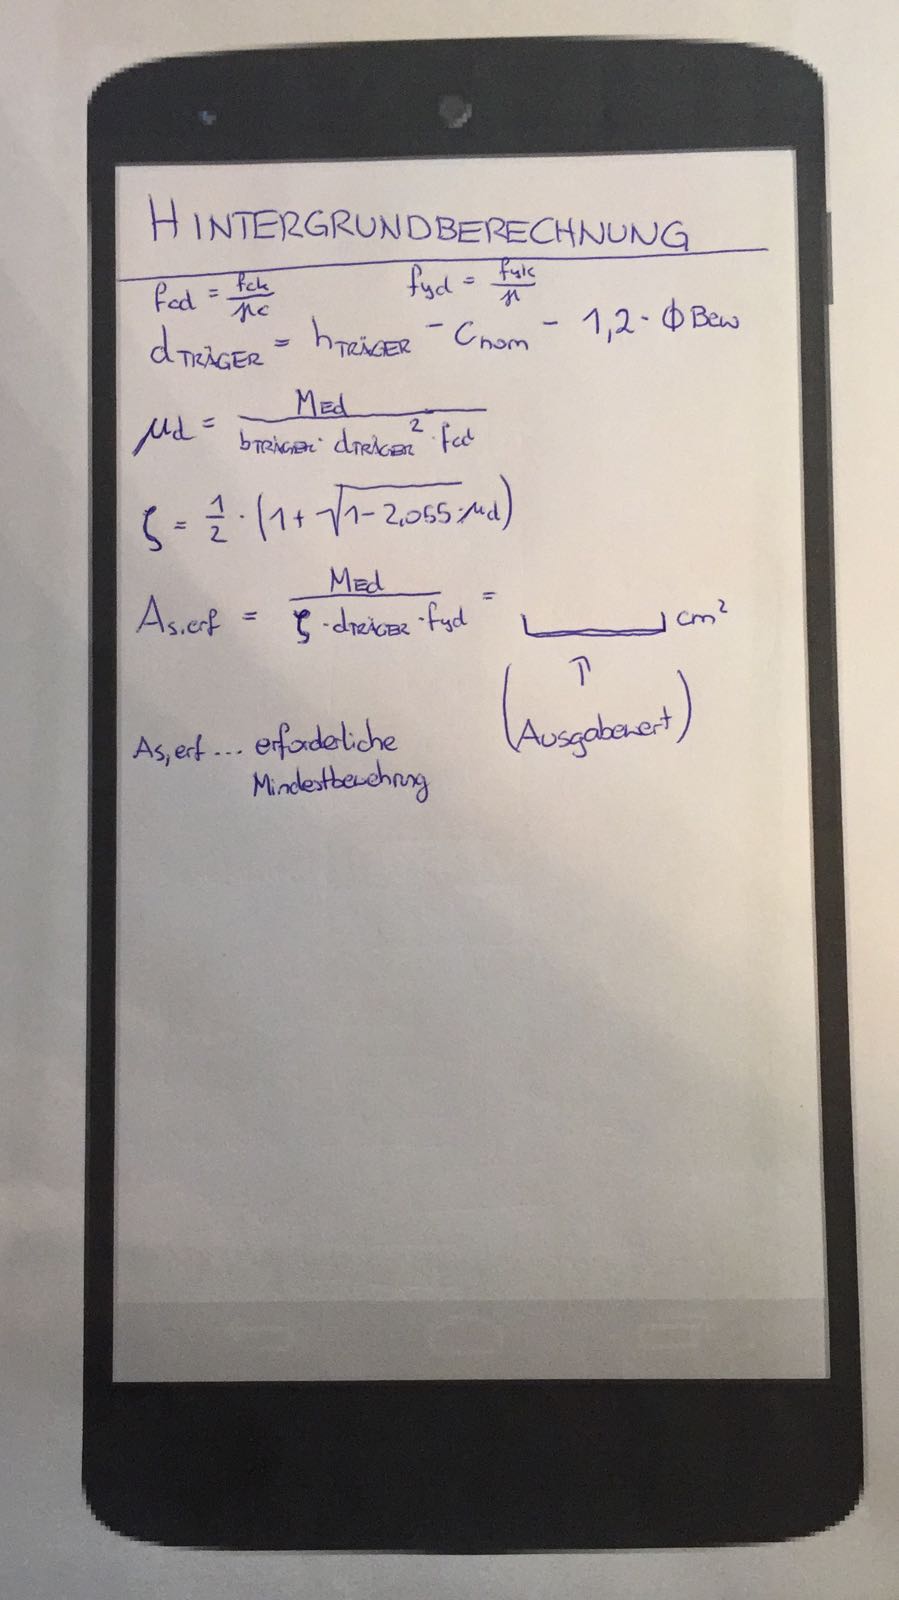 HINTERGRUNDBERECHNUNG
fcd = fck/γc fyd = fyk/γs
dTRÄGER = hTRÄGER - Cnom - 1,2 · ϕBew
μd = MEd / bTRÄGER · dTRÄGER² · fcd
ζ = 1/2 · (1 + √1 - 2,055 · μd)
As,erf = MEd / ζ · dTRÄGER · fyd = cm²
↑
(Ausgabewert)
As,erf ... erforderliche
Mindestbewehrung